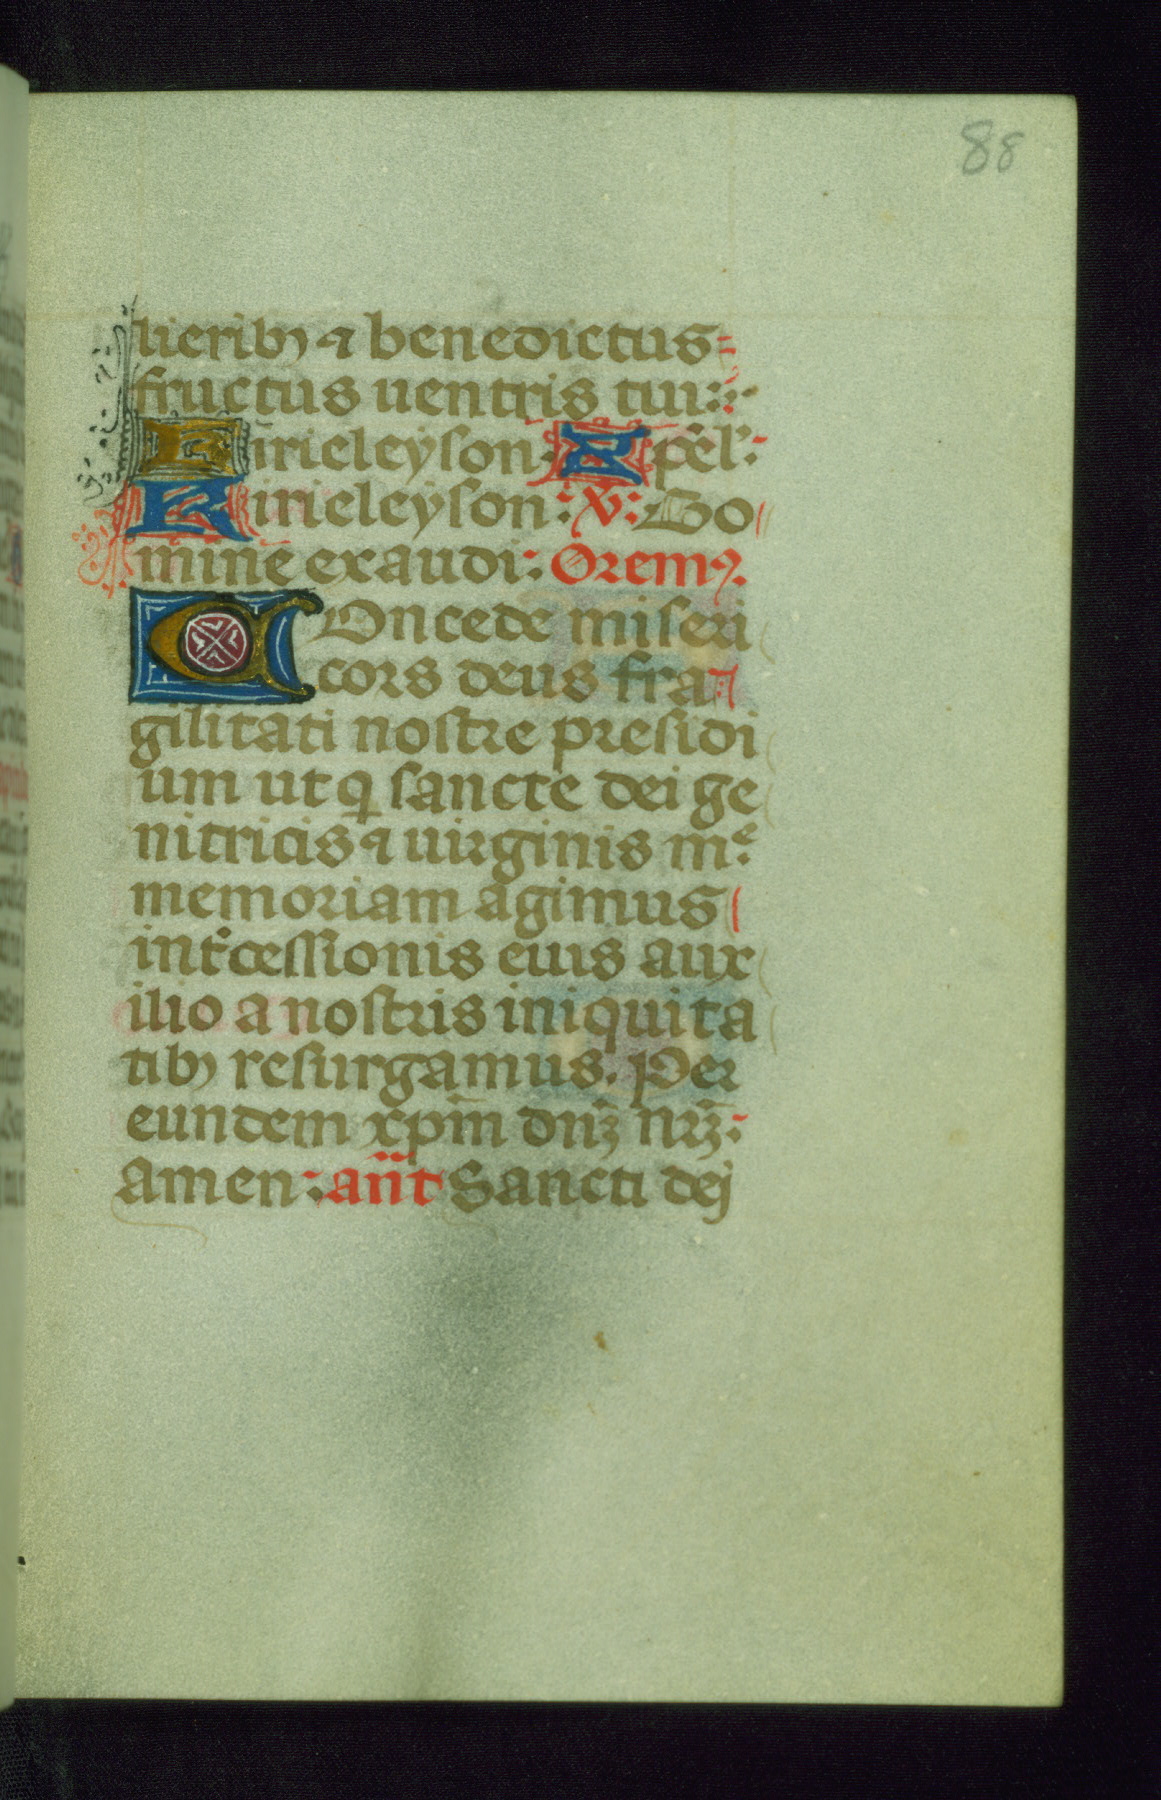 88
lieribꝫ ⁊ benedictus
fructus uentris tui:
Kirieleyson. Xpẽl':
Kirieleyson: V: Do
mine exaudi: Oremꝰ.
Concede miseri
cors deus fra
gilitati nostre presidi
um ut q̄ sancte dei ge
nitricis ⁊ uirginis m.ͤ
memoriam agimus
int̄cessionis euis aux
ilio a nostris iniquita
tibꝫ resurgamus. Per
eundem xp̄m dn̄ꝫ nr̄ꝫ:
Amen: an̄t Sancti dej